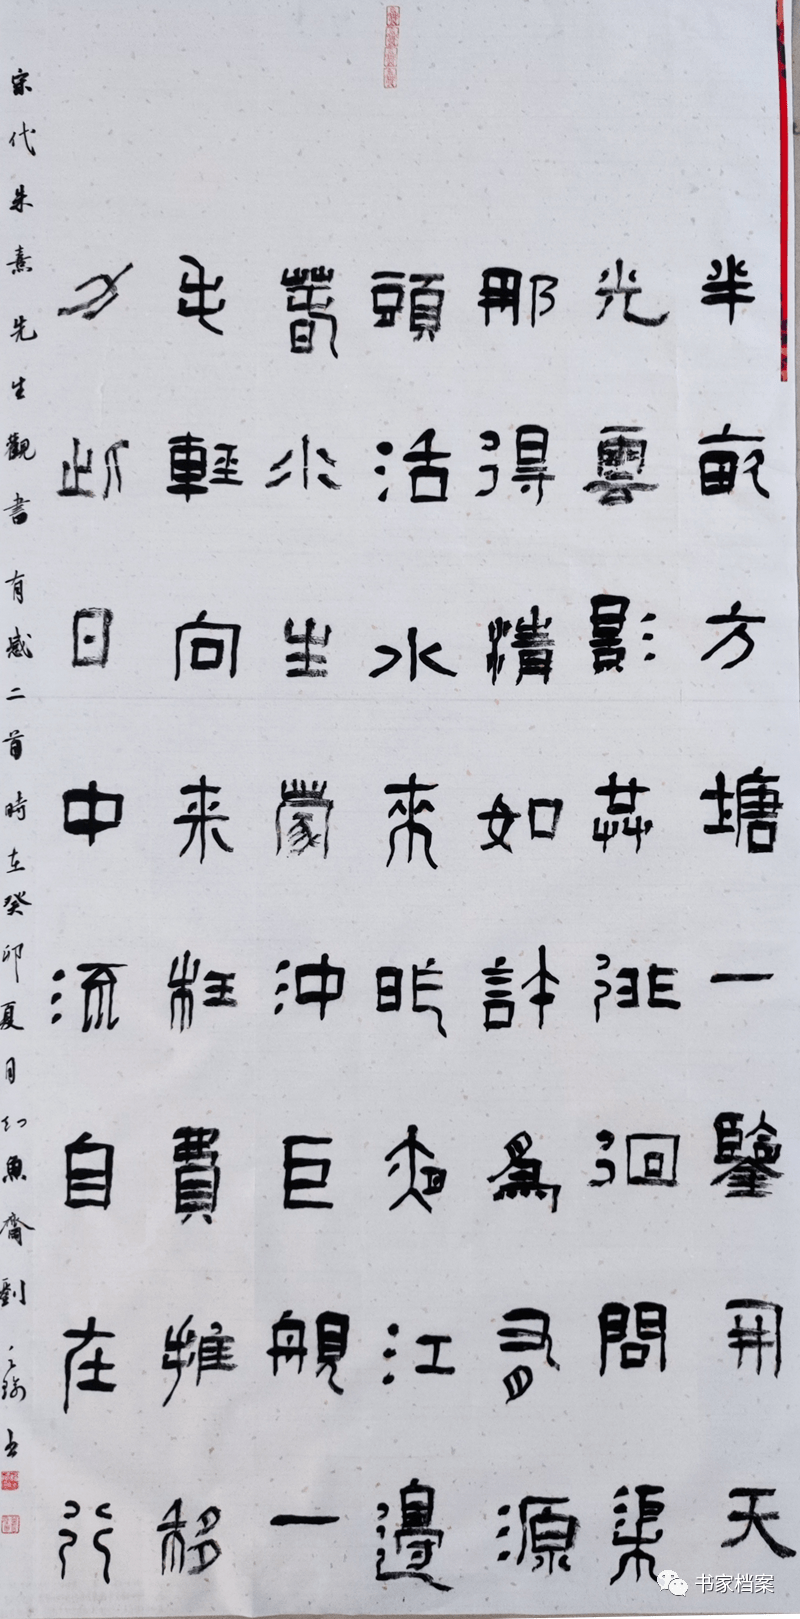 半畝方塘一鑒開天
光雲影共徘徊問渠
那得清如許爲有源
頭活水來昨夜江邊
春水生蒙沖巨舰一
毛輕向来枉費推移
力此日中流自在行
宋代朱熹先生觀書有感二首時在癸卯夏月幻魚齋劉书
书家档案